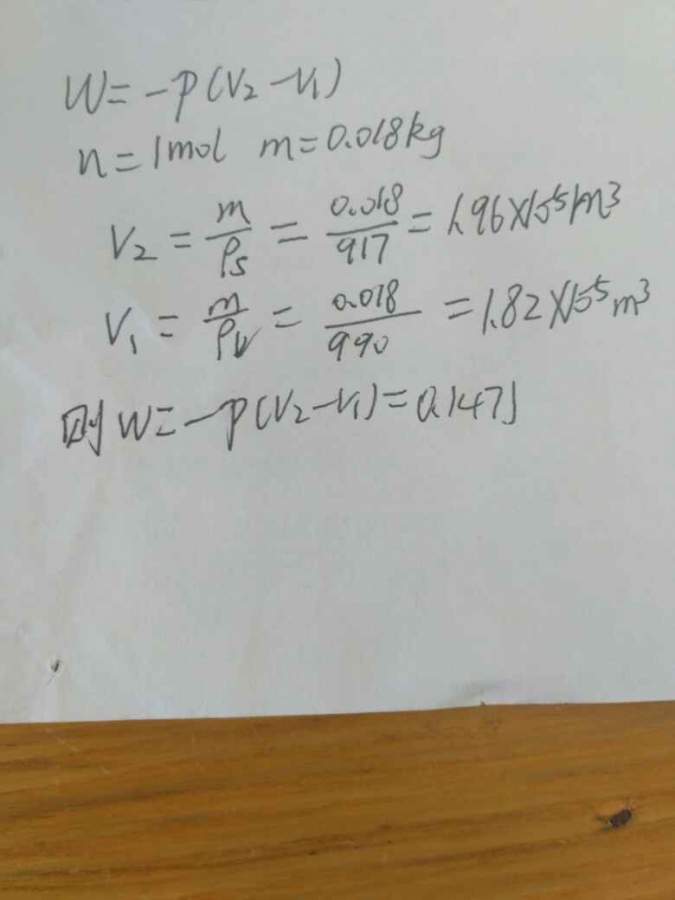 W=-p(V₂-V₁)
n=1mol m=0.018kg
V₂=m/ρs=0.018/917=1.96×10⁻⁵m³
V₁=m/ρ=0.018/990=1.82×10⁻⁵m³
则W=-p(V₂-V₁)=0.147J